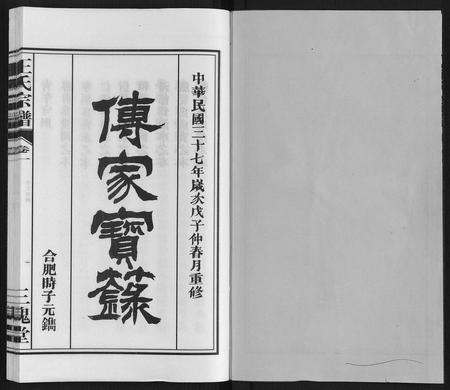 中華民國三十七年歲次戊子仲春月重修
傳家寶籙
合肥時子元鐫
王氏宗譜
卷一
三槐堂